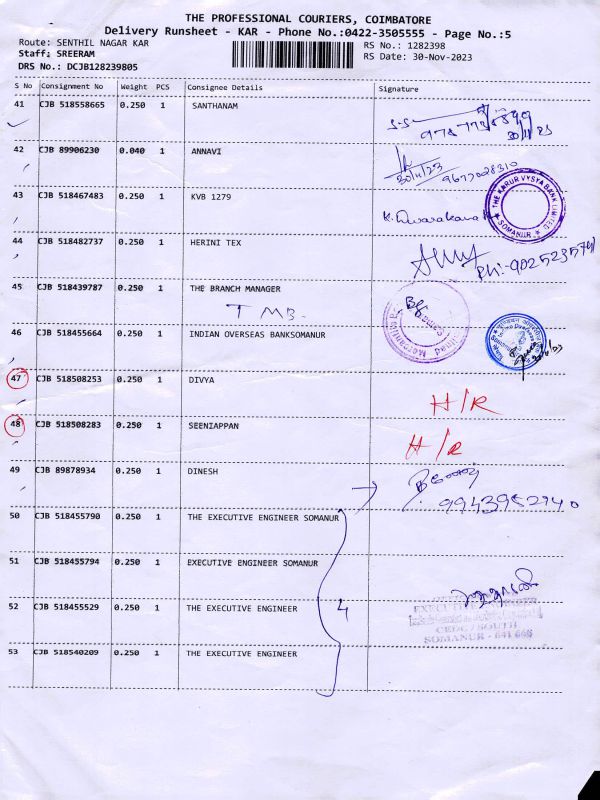 THE PROFESSIONAL COURIERS, COIMBATORE
Delivery Runsheet - KAR - Phone No.:0422-3505555 - Page No.:5
Route: SENTHIL NAGAR KAR
RS No.: 1282398
Staff: SREERAM
RS Date: 30-Nov-2023
DRS No.: DCJB128239805
S No Consignment No Weight PCS Consignee Details Signature
41 CJB 518558665 0.250 1 SANTHANAM
30/11/23
42 CJB 89906230 0.040 1 ANNAVI
30/11/23 9677028310
43 CJB 518467483 0.250 1 KVB 1279
K. Dwarakana
THE KARUR VYSYA BANK LIMITED
SOMANUR
44 CJB 518482737 0.250 1 HERINI TEX
Ph:-
45 CJB 518439787 0.250 1 THE BRANCH MANAGER
TMB
46 CJB 518455664 0.250 1 INDIAN OVERSEAS BANKSOMANUR
47 CJB 518508253 0.250 1 DIVYA
H/R
48 CJB 518508283 0.250 1 SEENIAPPAN
H/R
49 CJB 89878934 0.250 1 DINESH
9943952940
50 CJB 518455790 0.250 1 THE EXECUTIVE ENGINEER SOMANUR
51 CJB 518455794 0.250 1 EXECUTIVE ENGINEER SOMANUR
4
52 CJB 518455529 0.250 1 THE EXECUTIVE ENGINEER
EXECUTIVE ENGINEER
CEDC / SOUTH
SOMANUR - 641 668
53 CJB 518540209 0.250 1 THE EXECUTIVE ENGINEER